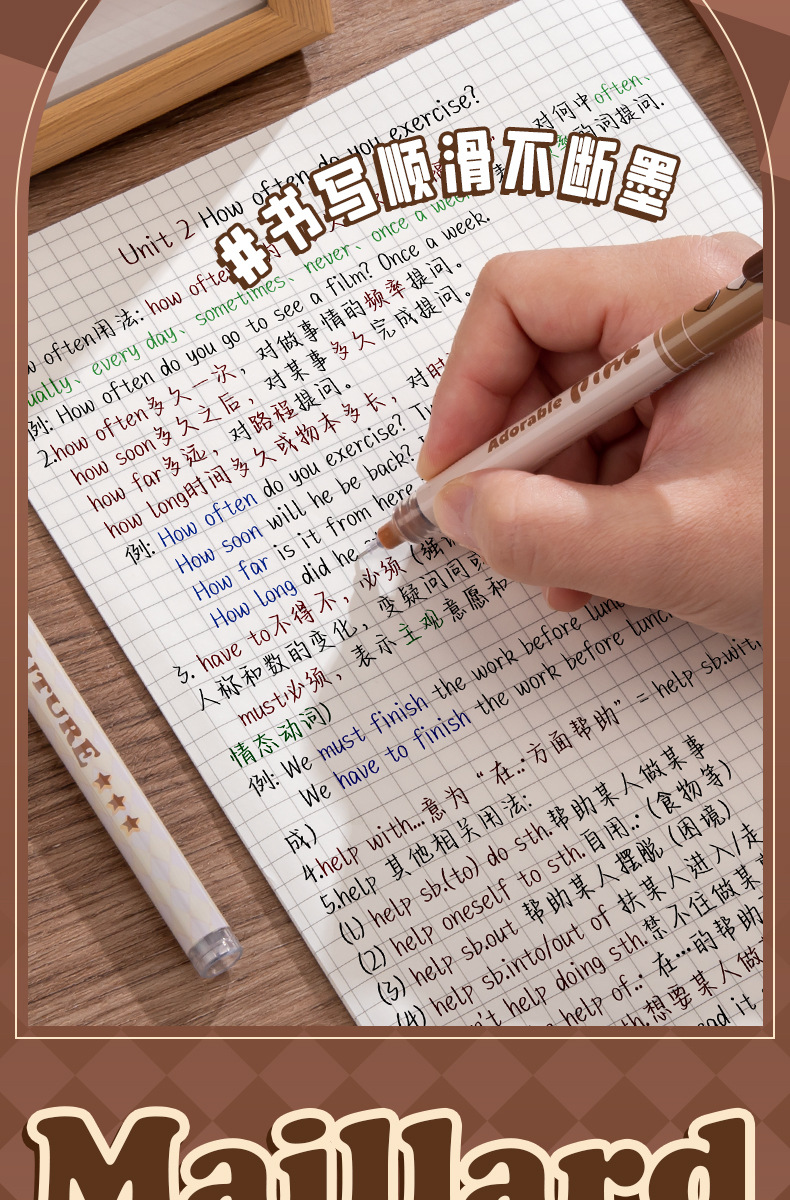 #书写顺滑不断墨
Unit 2 How often do you exercise?
often用法: how often 对何中often、
ually、every day、sometimes、never、once a week 的词提问.
例: How often do you go to see a film? Once a week.
2.how often多久一次，对做事情的频率提问。
how soon多久之后，对某事多久完成提问。
how far多远，对路程提问。
how long时间多久或物本多长，对时
例: How often do you exercise?
How soon will he be back?
How far is it from here
How long did he
3. have to不得不，必须(强
人称和数的变化，变疑问
must必须，表示主观意愿和
情态动词)
例: We must finish the work before lunch
We have to finish the work before lunch
4.help with...意为“在..方面帮助” = help sb.with
成)
5.help 其他相关用法:
(1) help sb.(to) do sth.帮助某人做某事
(2) help oneself to sth.自用..: (食物等)
(3) help sb.out 帮助某人摆脱(困境)
(4) help sb.into/out of 扶某人进入/走
n't help doing sth.禁不住做某
help of..: 在...的帮助
th.想要某人做
Adorable Pink
TURE
Maillard